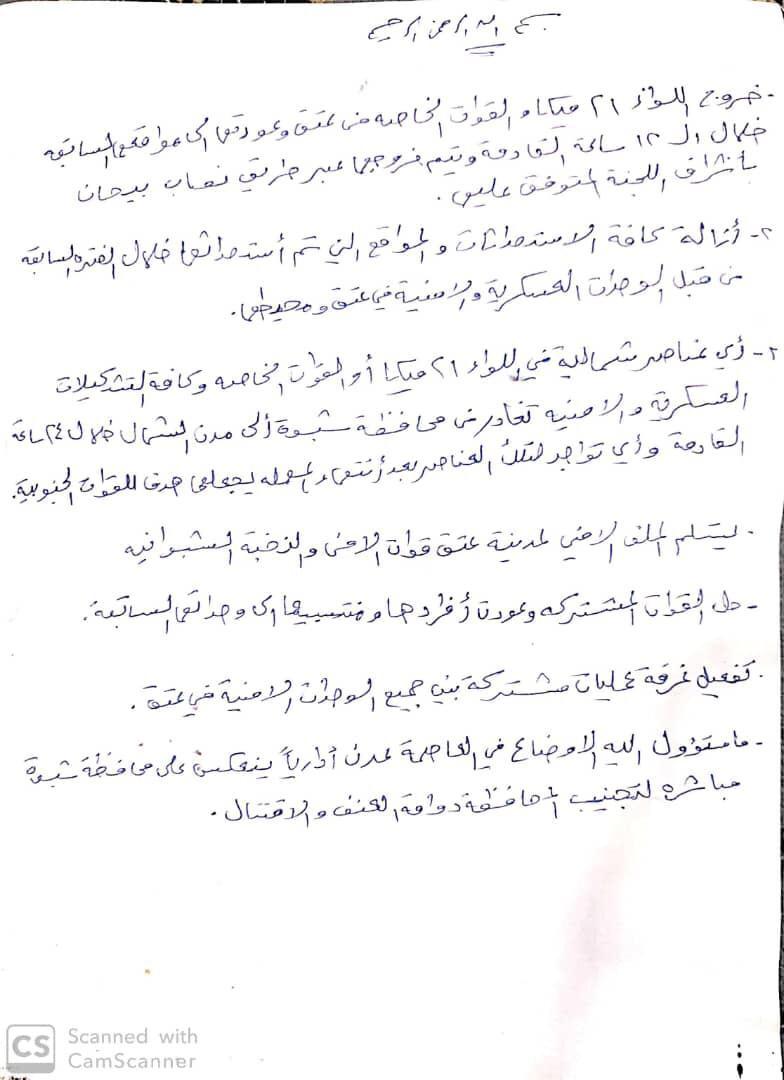 بسم الله الرحمن الرحيم
- خروج اللواء ٢١ ميكا و القوات الخاصه من عتق وعودتها الى مواقعها السابقه
خلال الـ ١٢ ساعة القادمة ويتم خروجها عبر طريق نصاب بيحان
بأشراف اللجنة المتوفق عليها.
٢- أزالة كافة الاستحداثات و المواقع التي تم أستحداثها خلال الفتره السابقه
من قبل الوحدات العسكرية والامنية في عتق ومحيطها.
٢- أي عناصر شمالية في اللواء ٢١ ميكا أو القوات الخاصه وكافة التشكيلات
العسكرية والامنيه تغادر من محافظة شبوة ألى مدن الشمال خلال ٢٤ ساعة
القادمة وأي تواجد لتلك العناصر بعد أنتهاء المهله يجعلها هدف للقوات الجنوبية.
. يستلم الملف الامني لمدينة عتق قوات الامن والنخبة الشبوانيه
- حل القوات المشتركه وعودة أفرادها ومنتسبيها الى وحداتها السابقة.
. تفعيل غرفة عمليات مشتركة بين جميع الوحدات الامنية في عتق.
- ما ستؤول اليه الاوضاع في العاصمة عدن أدارياً ينعكس على محافظة شبوة
مباشره لتجنيب المحافظة دوامة العنف والاقتتال.
CS Scanned with
CamScanner